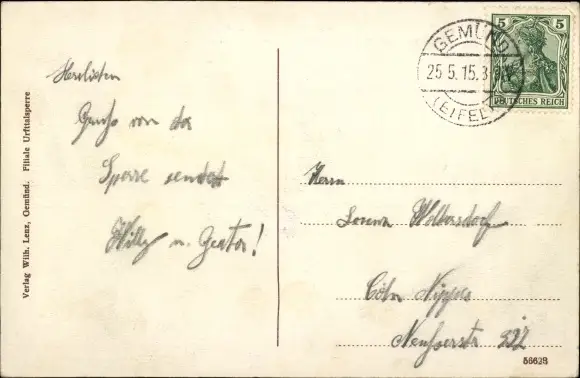 Herzlichen
Gruß von der
Sperre sendet
Willy u.
Verlag Wilh. Lenz, Gemünd. Filiale Urfttalsperre
GEMÜND
25.5.15.
(EIFEL)
5 5
DEUTSCHES REICH
Herrn
Woltersdorf
Cöln Nippes
Neußerstr
56623